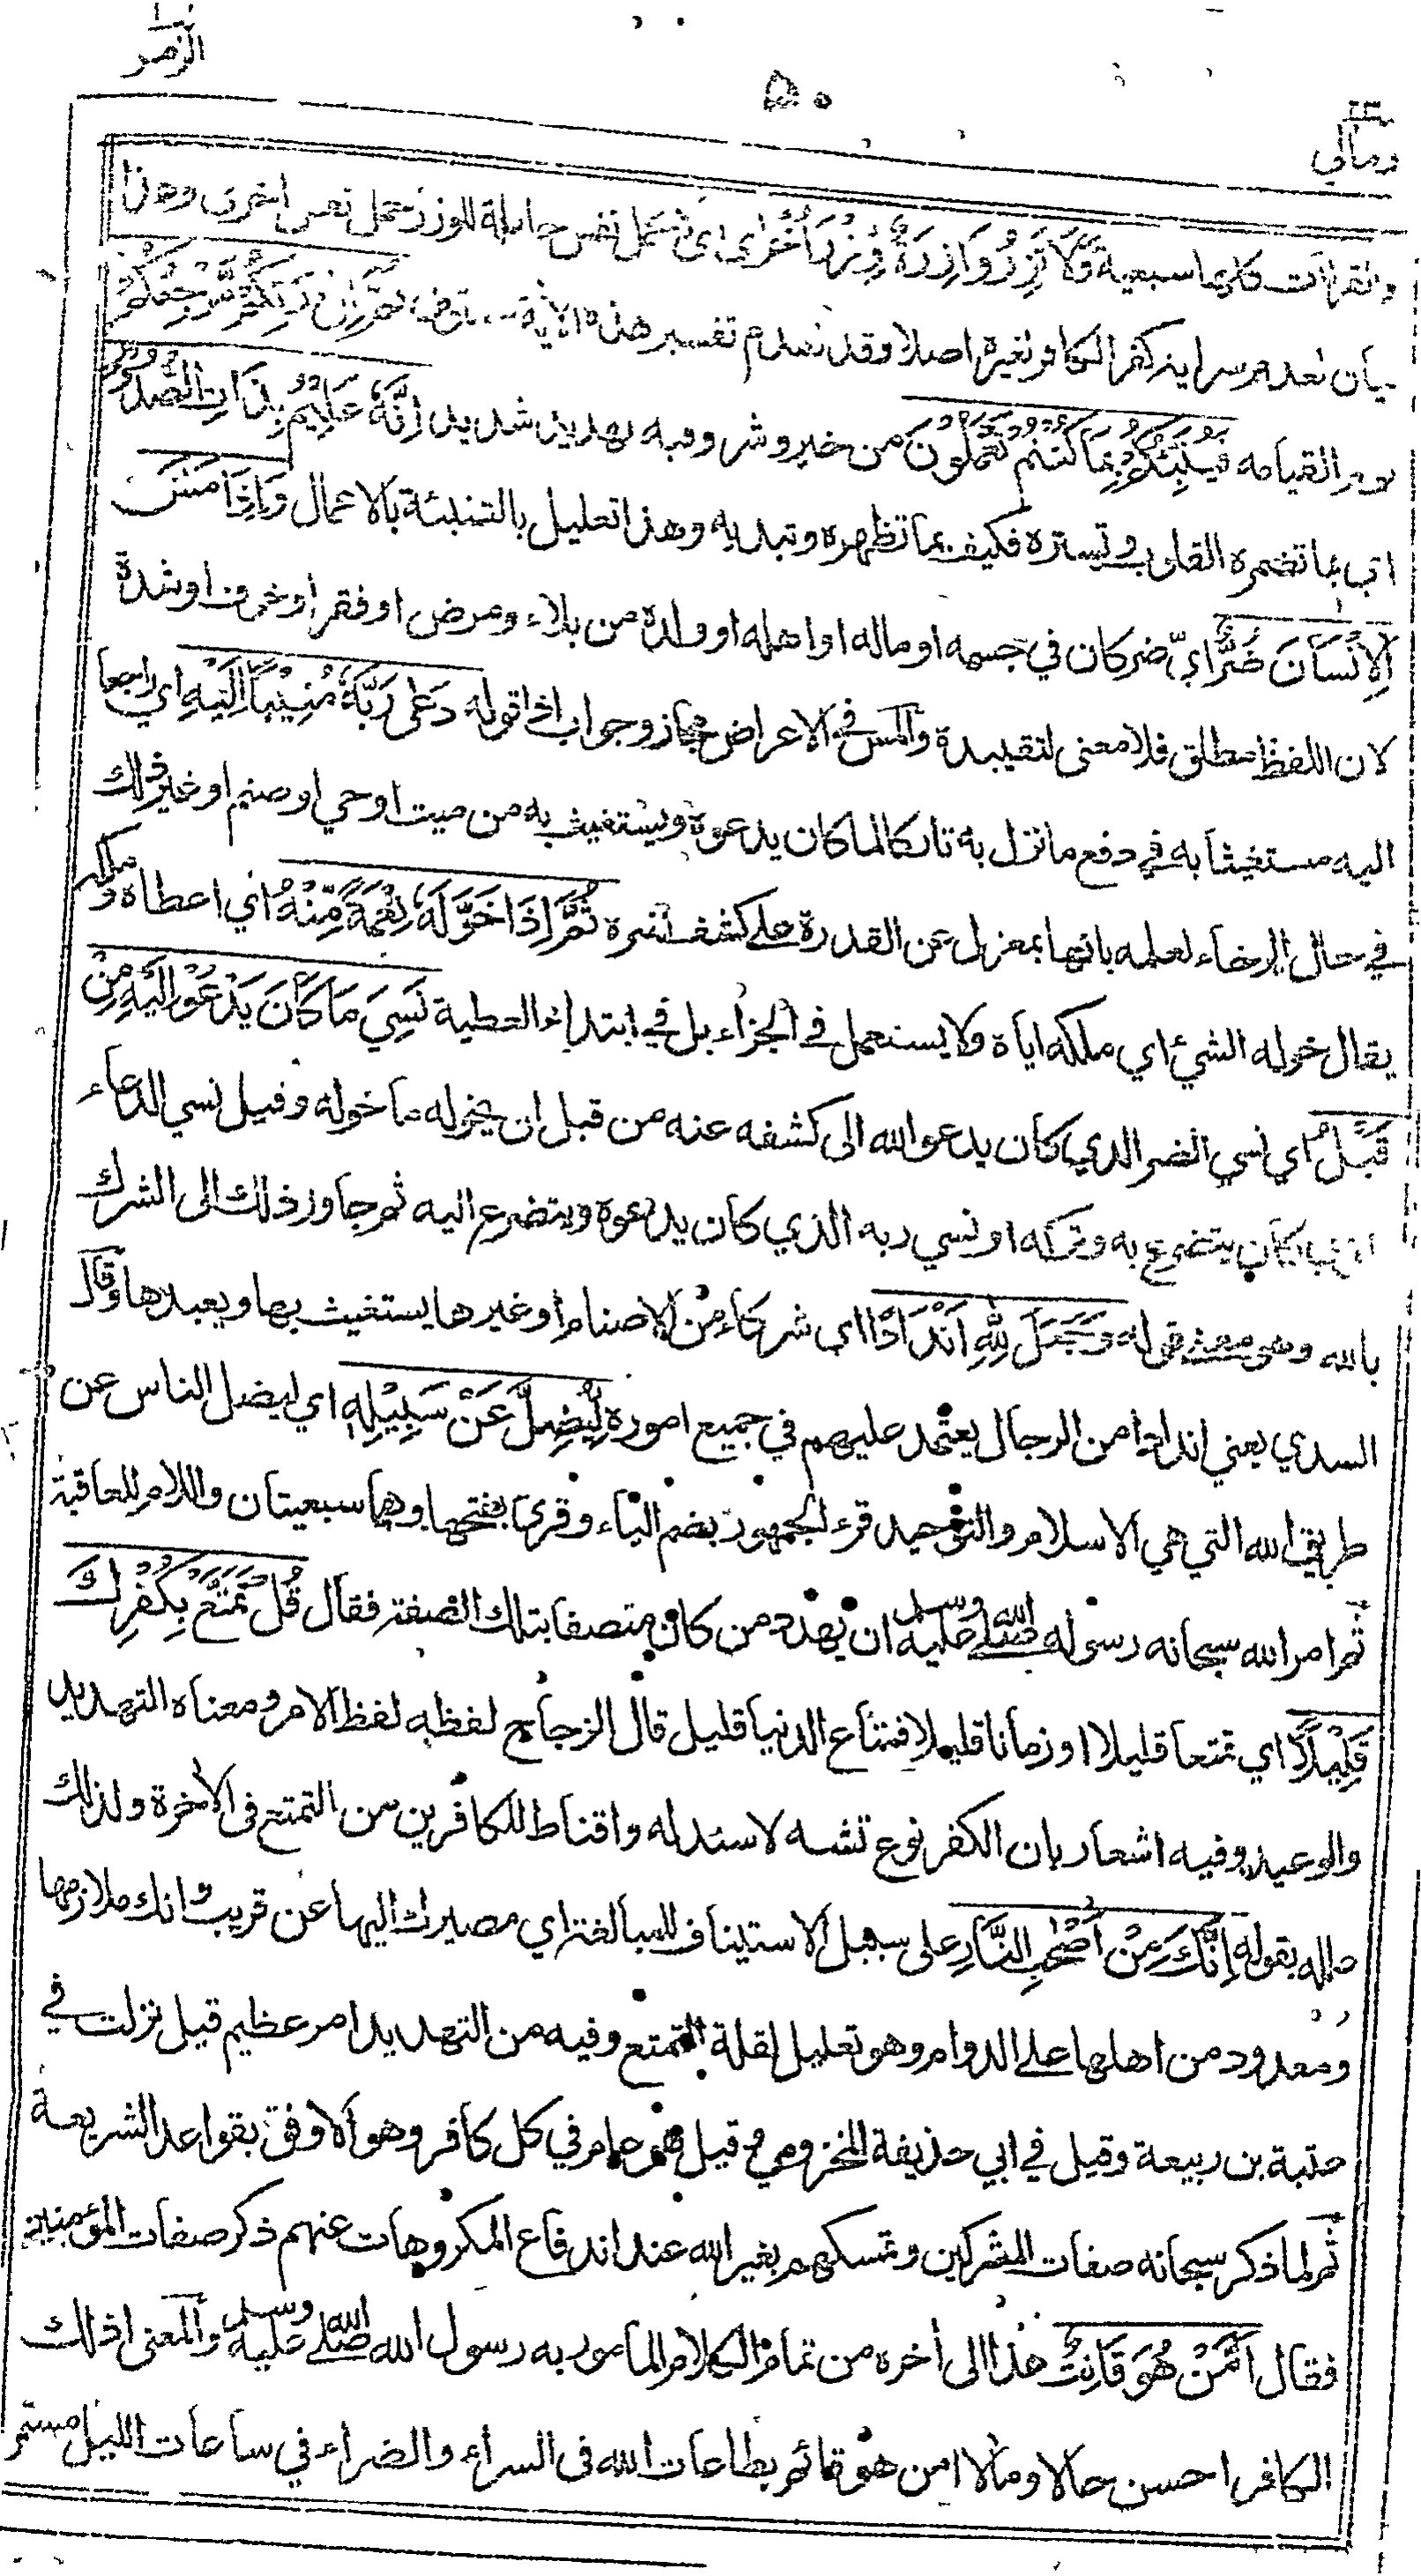 الزمر
۵۰
ومالي
والقراآت كلها سبعية وَلَا تَزِرُ وَازِرَةٌ وِّزْرَ أُخْرَى اى لا تحمل نفس حاملة للوزر حمل نفس اخرى وهذا
بيان لعدم سراية كفر الكافر لغيره اصلا وقد تقدم تفسير هذه الأية مستوفى ثُمَّ اِلٰى رَبِّكُمْ مَّرْجِعُكُمْ
يوم القيامه فَيُنَبِّئُكُمْ بِمَا كُنْتُمْ تَعْمَلُوْنَ من خير وشر وفيه تهديد شديد اِنَّهٗ عَلِيْمٌ بِذَاتِ الصُّدُوْرِ
اي بما تضمره القلوب وتستره فكيف بما تظهره وتبديه وهذا تعليل بالتنبئة بالاعمال وَاِذَا مَسَّ
الْاِنْسَانَ ضُرٌّ اي ضر كان في جسمه او ماله او اهله او ولده من بلاء ومرض او فقر او خوف او شدة
لان اللفظ مطلق فلا معنى لتقييده والمس في الاعراض مجاز وجواب اذا قوله دَعٰى رَبَّهٗ مُنِيْبًا اِلَيْهِ اي راجعا
اليه مستغيثا به في دفع ما نزل به تاركا لما كان يدعوه ويستغيث به من ميت او حي او صنم او غير ذلك
في حال الرخاء لعلمه بانها بمعزل عن القدرة على كشف ضره ثُمَّ اِذَا خَوَّلَهٗ نِعْمَةً مِّنْهُ اي اعطاه وملكه
يقال خوله الشيء اي ملكه اياه ولا يستعمل في الجزاء بل في ابتداء العطية نَسِيَ مَا كَانَ يَدْعُوْ اِلَيْهِ مِنْ
قَبْلُ اي نسي الضر الذي كان يدعو الله الى كشفه عنه من قبل ان يخوله ما خوله وقيل نسي الدعاء
الذي كان يتضرع به وتركه او نسي ربه الذي كان يدعوه ويتضرع اليه ثم جاوز ذلك الى الشرك
بالله وهو معنى قوله وَجَعَلَ لِلّٰهِ اَنْدَادًا اي شركاء من الاصنام او غيرها يستغيث بها ويعبدها وقال
السدي يعني اندادا من الرجال يعتمد عليهم في جميع اموره لِيُضِلَّ عَنْ سَبِيْلِهٖ اي ليضل الناس عن
طريق الله التي هي الاسلام والتوحيد قرء الجمهور بضم الياء وقرئ بفتحها وهما سبعيتان واللام للعاقبة
ثم امر الله سبحانه رسوله صلى الله عليه وسلم ان يهدد من كان متصفا بتلك الصفة فقال قُلْ تَمَتَّعْ بِكُفْرِكَ
قَلِيْلًا اي تمتعا قليلا او زمانا قليلا فمتاع الدنيا قليل قال الزجاج لفظه لفظ الامر ومعناه التهديد
والوعيد وفيه اشعار بان الكفر نوع تشه لا سند له واقناط للكافرين من التمتع في الأخرة ولذلك
علله بقوله اِنَّكَ مِنْ اَصْحٰبِ النَّارِ على سبيل الاستيناف للمبالغة اي مصيرك اليها عن قريب وانك ملازمها
ومعدود من اهلها على الدوام وهو تعليل لقلة التمتع وفيه من التهديد امر عظيم قيل نزلت في
عتبة بن ربيعة وقيل في ابي حذيفة المخزومي وقيل هو عام في كل كافر وهو الاوفق بقواعد الشريعة
ثم لما ذكر سبحانه صفات المشركين وتمسكهم بغير الله عند اندفاع المكروهات عنهم ذكر صفات المؤمنين
فقال اَمَّنْ هُوَ قَانِتٌ هذا الى أخره من تمام الكلام المأمور به رسول الله صلى الله عليه وسلم والمعنى اذلك
الكافر احسن حالا ومالا امن هو قائم بطاعات الله في السراء والضراء في ساعات الليل مستمر